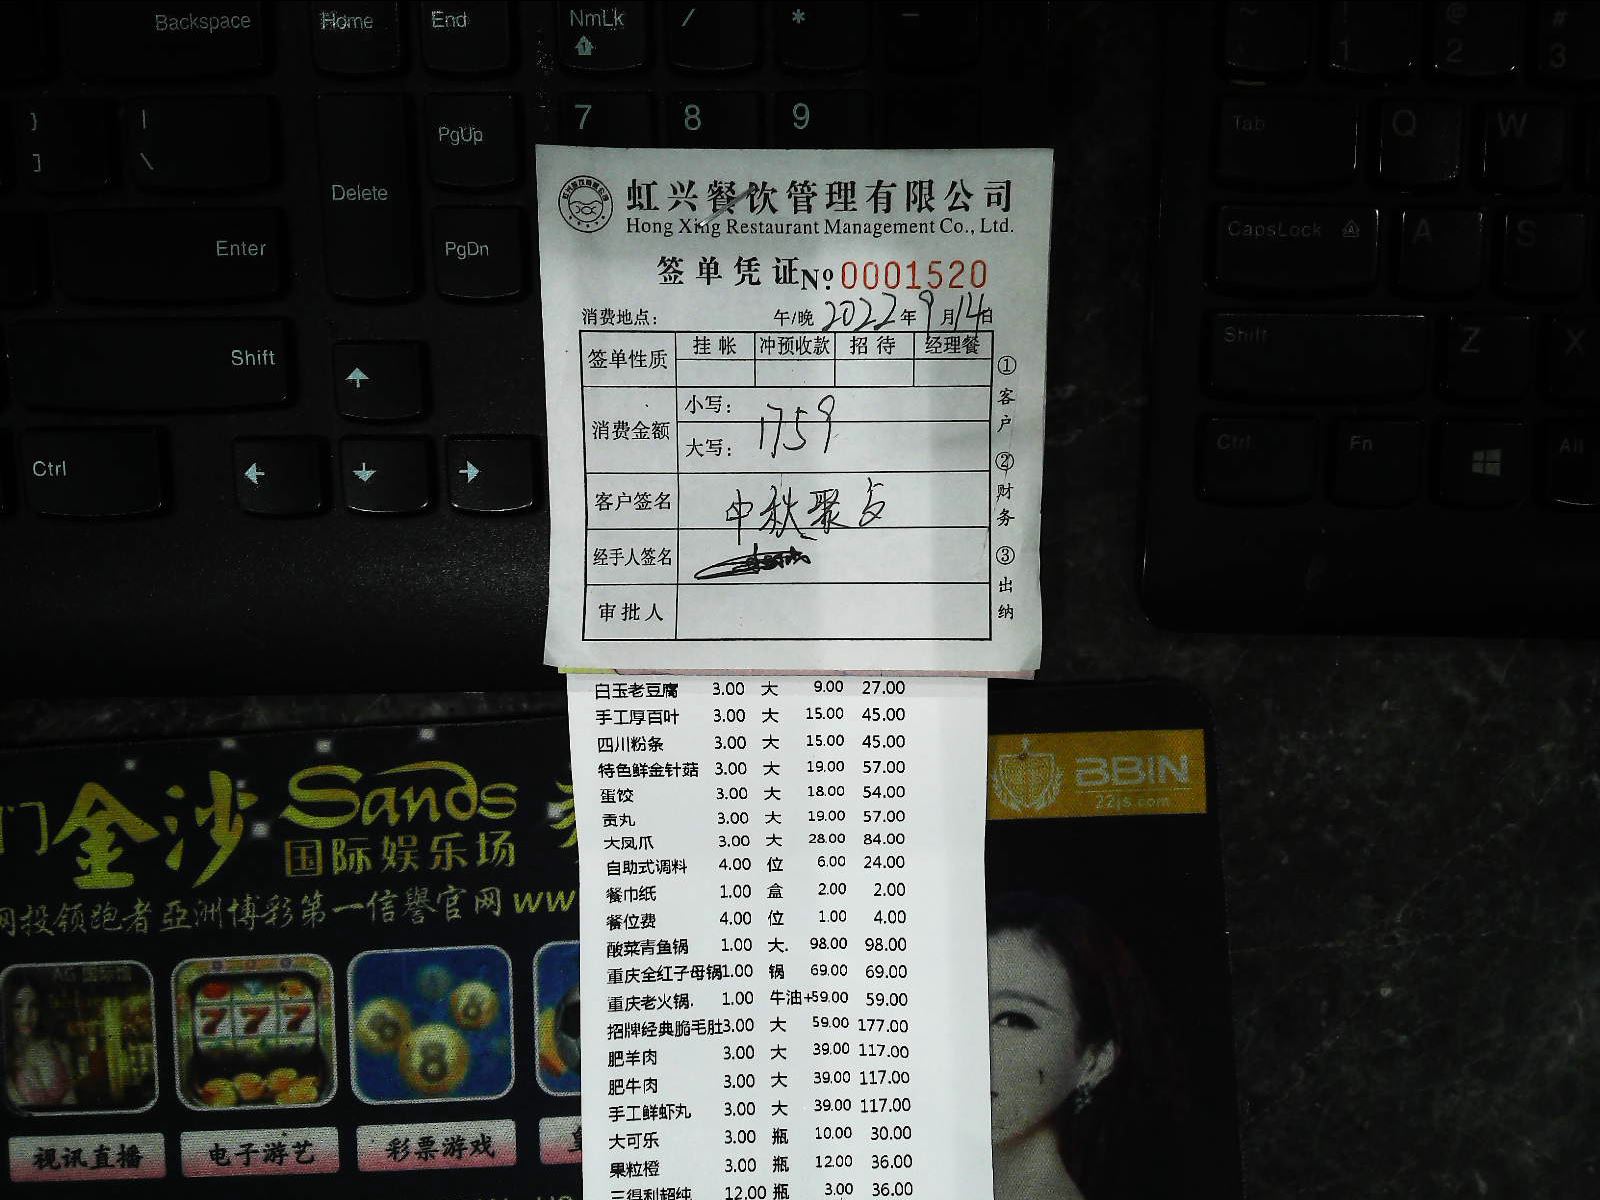 Backspace
Home
End
NmLk
/
*
-
~
1
@
2
#
3
}
]
|
\
Delete
PgUp
7
8
9
Tab
Q
W
Enter
PgDn
CapsLock
A
S
Shift
Shift
Z
X
Ctrl
Ctrl
Fn
Alt
虹兴餐饮管理有限公司
Hong Xing Restaurant Management Co., Ltd.
签单凭证 No 0001520
消费地点: 午/晚 2022年9月14日
签单性质 挂帐 冲预收款 招待 经理餐
消费金额 小写: 1759
大写:
客户签名 中秋聚
经手人签名
审批人
①客户 ②财务 ③出纳
白玉老豆腐 3.00 大 9.00 27.00
手工厚百叶 3.00 大 15.00 45.00
四川粉条 3.00 大 15.00 45.00
特色鲜金针菇 3.00 大 19.00 57.00
蛋饺 3.00 大 18.00 54.00
贡丸 3.00 大 19.00 57.00
大凤爪 3.00 大 28.00 84.00
自助式调料 4.00 位 6.00 24.00
餐巾纸 1.00 盒 2.00 2.00
餐位费 4.00 位 1.00 4.00
酸菜青鱼锅 1.00 大. 98.00 98.00
重庆全红子母锅1.00 锅 69.00 69.00
重庆老火锅. 1.00 牛油+59.00 59.00
招牌经典脆毛肚3.00 大 59.00 177.00
肥羊肉 3.00 大 39.00 117.00
肥牛肉 3.00 大 39.00 117.00
手工鲜虾丸 3.00 大 39.00 117.00
大可乐 3.00 瓶 10.00 30.00
果粒橙 3.00 瓶 12.00 36.00
三得利超纯 12.00 瓶 3.00 36.00
门金沙 Sands
国际娱乐场
网投领跑者 亞洲博彩第一信譽官网 ww
AG 国际馆
777
8
6
8
视讯直播
电子游艺
彩票游戏
BBIN
22js.com